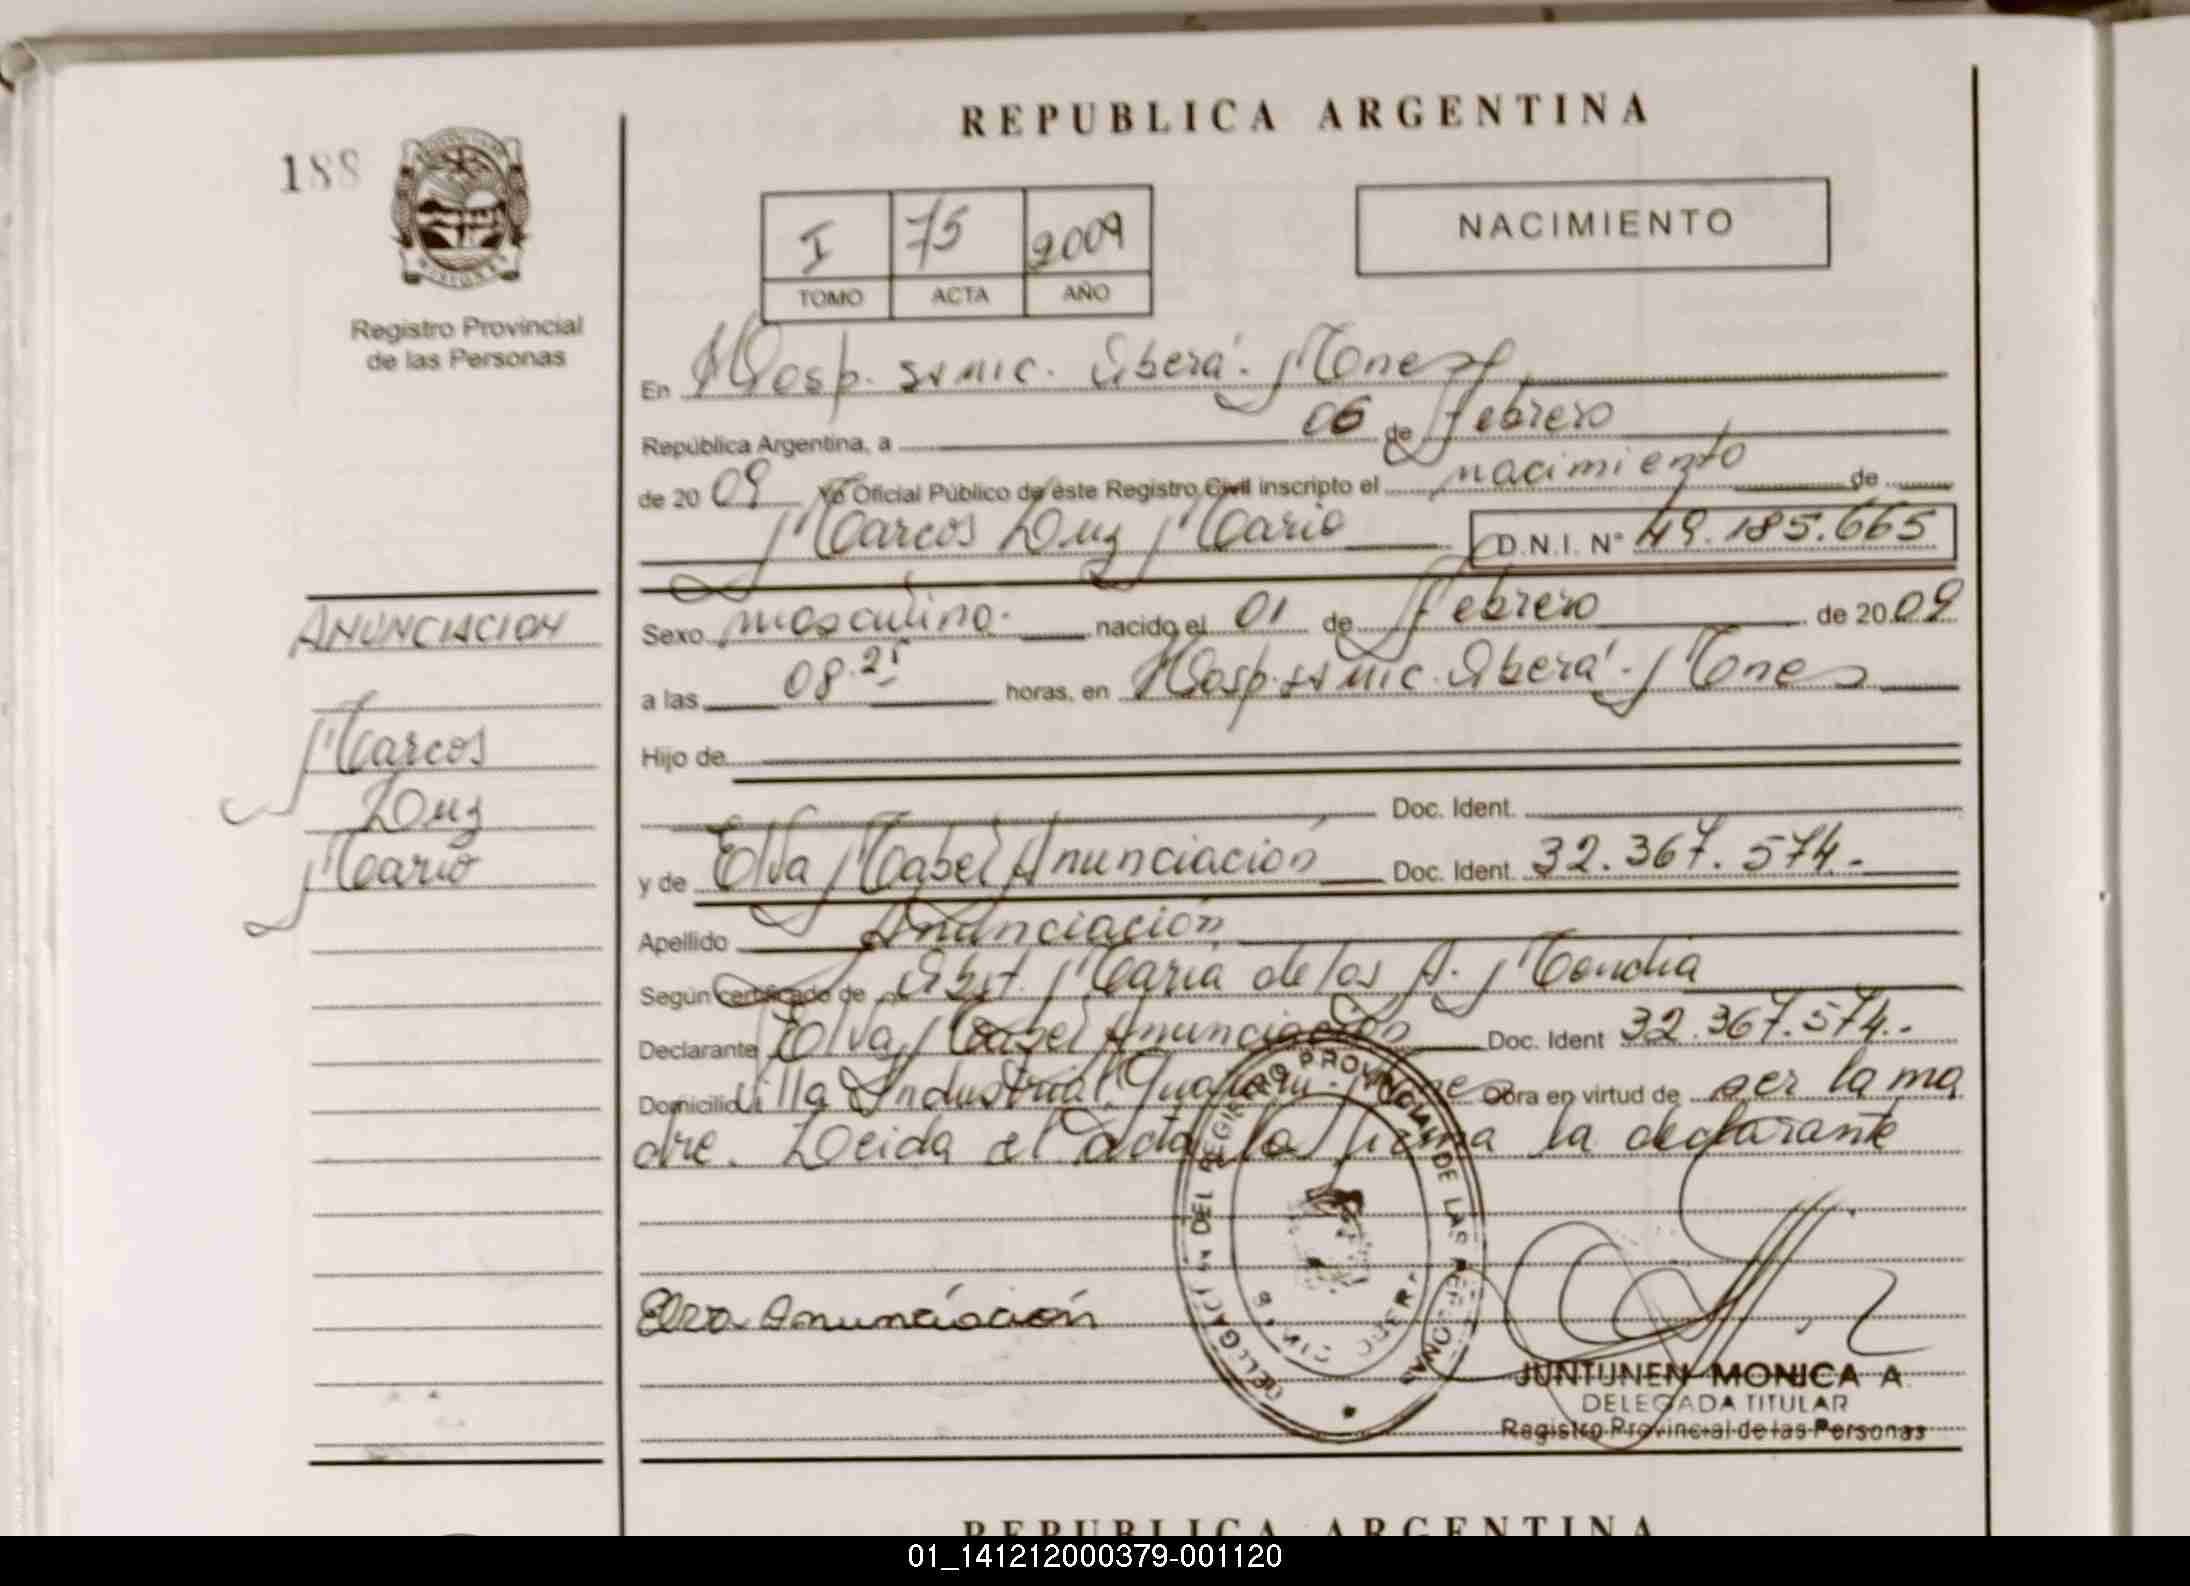 REPUBLICA ARGENTINA
188
I 75 2009
TOMO ACTA AÑO
NACIMIENTO
Registro Provincial
de las Personas
En Hosp. Iberá. Mones
República Argentina, a 06 de febrero
de 2009 Yo Oficial Público de este Registro Civil inscripto el nacimiento de
Marcos Luz Mario D.N.I. N° 49.185.665
ANUNCIACION
Marcos
Luz
Mario
Sexo masculino. nacido el 01 de febrero de 2009
a las 08.25 horas, en Hosp. Iberá. Mones
Hijo de
Doc. Ident.
y de Elva Mabel Anunciación Doc. Ident. 32.367.574.-
Apellido Anunciación
Según certificado de Obst. María de los A.
Declarante Elva Mabel Anunciación Doc. Ident 32.367.574.-
Domicilio Villa Industrial. Obra en virtud de ser la ma
dre. Leida el acta la firma la declarante
Elva Anunciación
DEL REGISTRO PROVINCIAL DE LAS PERSONAS
JUNTUNEN MONICA A
DELEGADA TITULAR
Registro Provincial de las Personas
REPUBLICA ARGENTINA
01_141212000379-001120